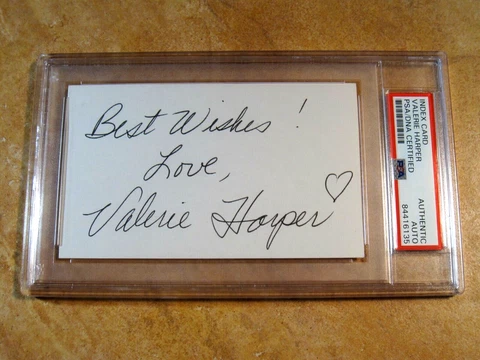 Best Wishes!
Love,
Valerie Harper
INDEX CARD
VALERIE HARPER
PSA/DNA CERTIFIED
PSA
AUTHENTIC
AUTO
84416135